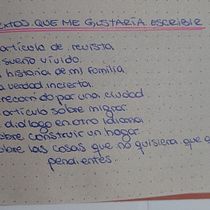 EXTOS QUE ME GUSTARÍA ESCRIBIR
artículo de revista
sueño vivido.
historia de mi familia
verdad incierta.
recorrido por una ciudad
artículo sobre migrar
diálogo en otro idioma
obre construir un hogar
obre las cosas que no quisiera que
pendientes.